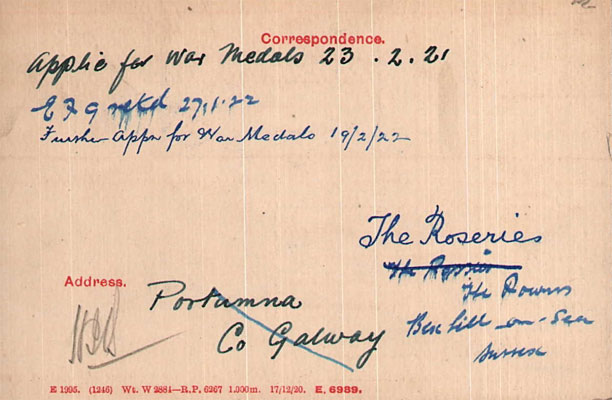 Correspondence.
Applic for War Medals 23.2.21
E F 9 retd 27.1.22
Further Appn for War Medals 19/2/22
The Roseries
The Downs
Bexhill-on-Sea
Sussex
Address.
Portumna
Co Galway
E 1995. (1246) Wt. W 2884—R.P. 6267 1.000m. 17/12/20. E. 6989.